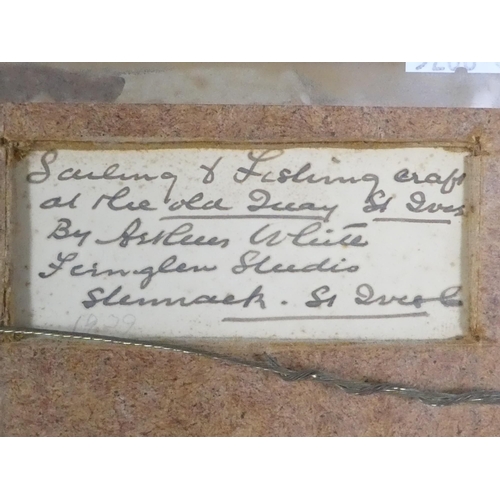 Sailing & Fishing craft
at the old Quay St Ives
By Arthur White
Fernglen Studio
Stennack. St Ives
1929